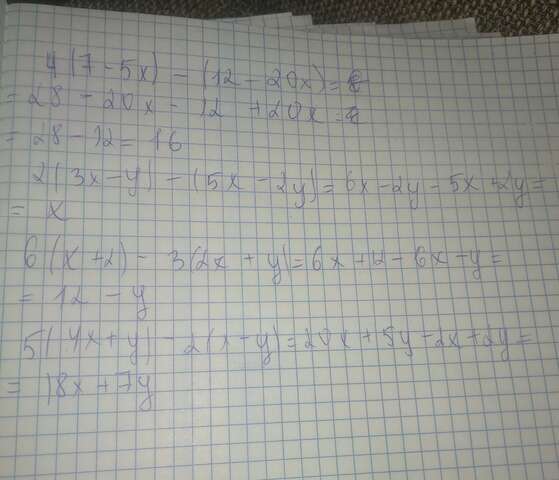 4(7-5x)-(12-20x)=
=28-20x-12+20x=
=28-12=16
2(3x-y)-(5x-2y)=6x-2y-5x+2y=
=x
6(x+2)-3(2x+y)=6x+12-6x-y=
=12-y
5(4x+y)-2(x-y)=20x+5y-2x+2y=
=18x+7y